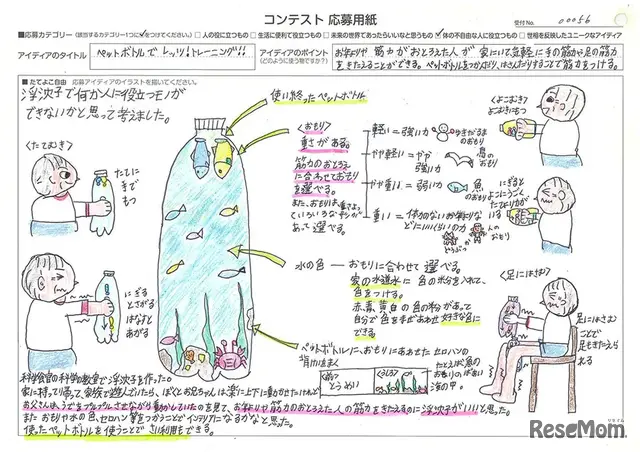 コンテスト 応募用紙
受付No. 00056
■応募カテゴリー(該当するカテゴリー1つに✓をつけてください。) □人の役に立つもの □生活に便利で役立つもの □未来の世界であったらいいなと思うもの ☑体の不自由な人に役立つもの □世相を反映したユニークなアイディア
アイディアのタイトル
ペットボトルで レッツ!トレーニング!!
アイディアのポイント
(どのように使う物ですか?)
お年よりや 筋力がおとろえた人が 家にいて気軽に手の筋力や足の筋力
をきたえることができる。ペットボトルをつかんだり、はさんだりすることで筋力をつける。
■たてよこ自由 応募アイディアのイラストを描いてください。
浮沈子で何か人に役立つモノが
できないかと思って考えました。
使い終ったペットボトル
<たてむき>
たてに
手で
もつ
にぎる
とさがる
はなすと
あがる
<おもり>
重さがある。
筋力のおとろえ
に合わせておもり
を選べる。
あって選べる。
軽い=強い力
ゆきだるま
のおもり
やや軽い=やや
強い力
鳥の
おもり
やや重い=弱い力
魚の
おもり
重い=体力のないお年よりな
どにいいくらいの力
人の
おもり
どうぶつ
<よこむき>
よこむきにもつ
にぎると
よこにうごく
水の色 ― おもりに合わせて 選べる。
家の水道水に 色の粉を入れて、
色をつける。
赤、青、黄、白の色の粉があって
自分で色を手があわせ好きな色に
できる
ペットボトルに、おもりにあわせた セロハンの
背けいをまく
<足にはさむ>
足にはさむ
ことで
足もきたえら
れる
科学館の科学の教室で浮沈子を作った。
家に持ち帰って、家族で遊んでいたら、ぼくとお兄ちゃんは楽に上下に動かせたけれど
お父さんは、うでをプルプルさせながら動かしていたのを見て、お年よりや筋力のおとろえた人の筋力をきたえるのに浮沈子がいいと思った。
また おもりや水の色、セロハン等をつかうことで インテリアになるかなと思った。
使ったペットボトルを使うことで さい利用もできる。
ReseMom.
リセマム